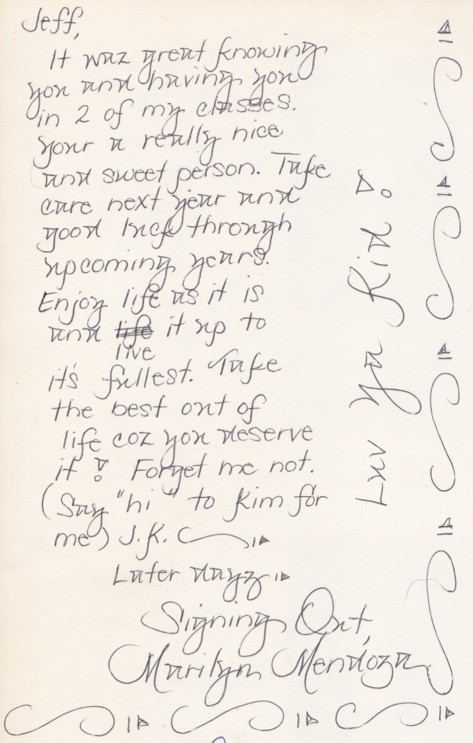 Jeff,
It waz great knowing
you and having you
in 2 of my classes.
your a really nice
and sweet person. Take
care next year and
good luck through
upcoming years.
Enjoy life as it is
and life it up to
live
it's fullest. Take
the best out of
life coz you deserve
it! Forget me not.
(Say "hi" to Kim for
me) J.K.
Later dayz
Signing Out,
Marilyn Mendoza
Luv Ya Kid!